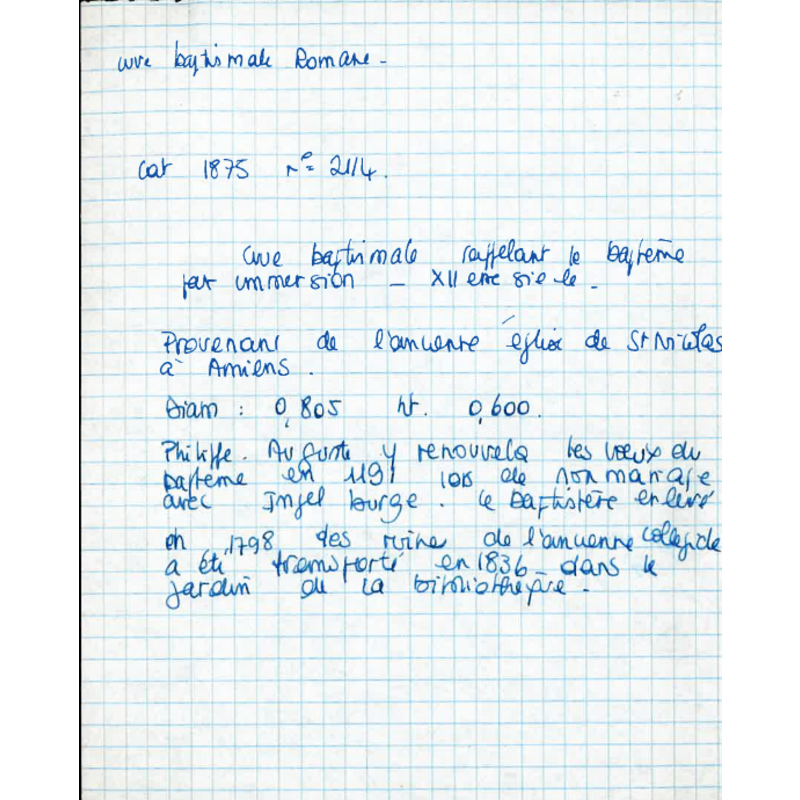 cuve baptismale Romane -
cat 1875 n° = 21/4.
Cuve baptismale rappelant le baptême
par immersion - XII eme siecle -
Provenant de l'ancienne église de St Nicolas
à Amiens.
Diam : 0,805 ht. 0,600.
Philippe. Auguste y renouvela les vœux du
baptême en 1191 lors de son mariage
avec Ingelburge. Le Baptistère enlevé
en 1798, des ruine de l'ancienne collegiale
a été transporté en 1836 - dans le
jardin de la bibliothèque -